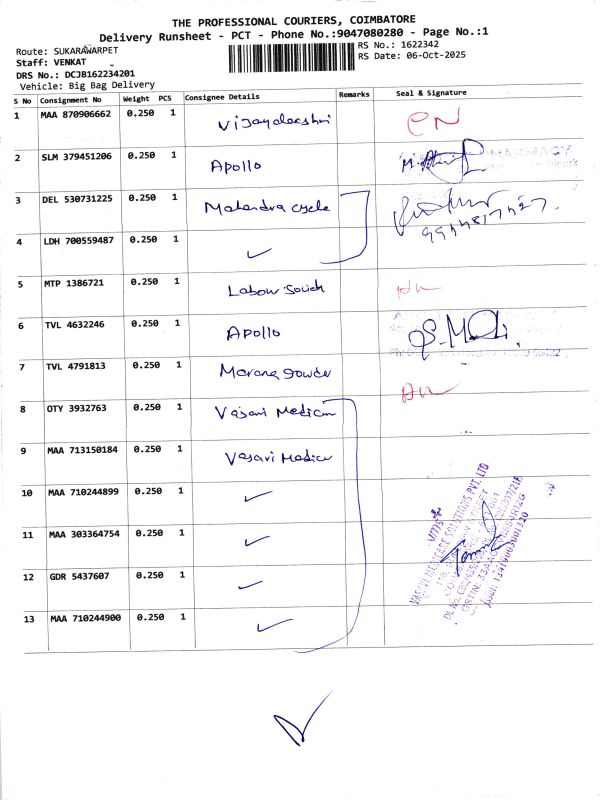 THE PROFESSIONAL COURIERS, COIMBATORE
Delivery Runsheet - PCT - Phone No.:9047080280 - Page No.:1
Route: SUKARAWARPET
RS No.: 1622342
Staff: VENKAT
RS Date: 06-Oct-2025
DRS No.: DCJB162234201
Vehicle: Big Bag Delivery
S No Consignment No Weight PCS Consignee Details Remarks Seal & Signature
1 MAA 870906662 0.250 1 Vijayalakshmi
2 SLM 379451206 0.250 1 Apollo
3 DEL 530731225 0.250 1 Mahendra cycle
4 LDH 700559487 0.250 1 ✓
5 MTP 1386721 0.250 1
6 TVL 4632246 0.250 1 Apollo
7 TVL 4791813 0.250 1
8 OTY 3932763 0.250 1 Vasavi Medicare
9 MAA 713150184 0.250 1 Vasavi Medica
10 MAA 710244899 0.250 1 ✓
11 MAA 303364754 0.250 1 ✓
12 GDR 5437607 0.250 1 ✓
13 MAA 710244900 0.250 1 ✓